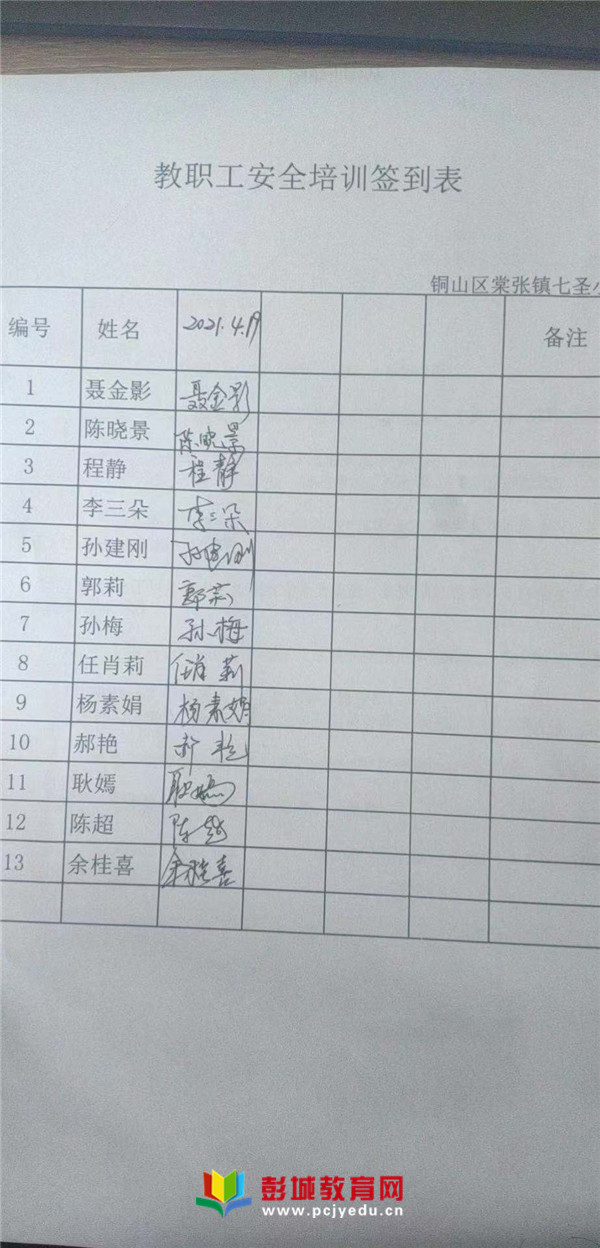 教职工安全培训签到表
铜山区棠张镇七圣小
编号 姓名 2021.4.19 备注
1 聂金影 聂金影
2 陈晓景 陈晓景
3 程静 程静
4 李三朵 李三朵
5 孙建刚 孙建刚
6 郭莉 郭莉
7 孙梅 孙梅
8 任肖莉 任肖莉
9 杨素娟 杨素娟
10 郝艳 郝艳
11 耿嫣 耿嫣
12 陈超 陈超
13 余桂喜 余桂喜
彭城教育网
www.pcjyedu.cn